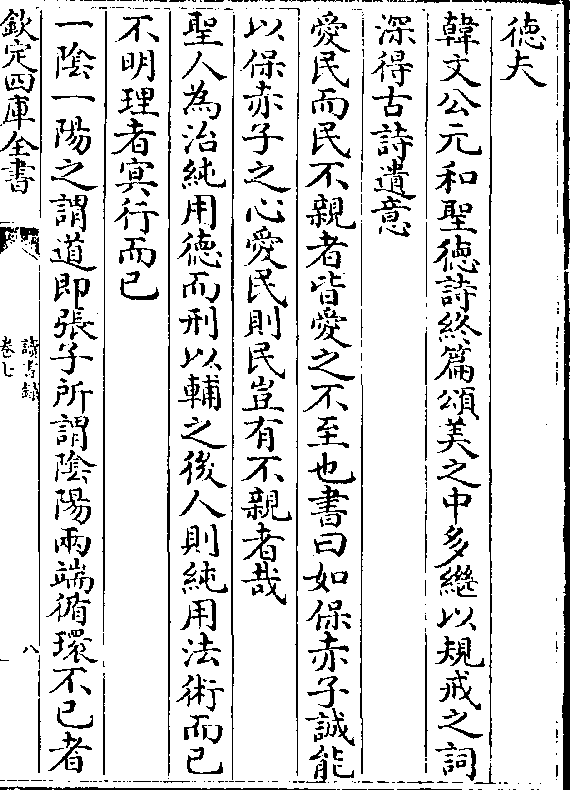 徳夫
韓文公元和聖徳詩終篇頌美之中多繼以規戒之詞
深得古詩遺意
愛民而民不親者皆愛之不至也書曰如保赤子誠能
以保赤子之心愛民則民豈有不親者哉
聖人為治純用徳而刑以輔之後人則純用法術而已
不明理者冥行而已
一陰一陽之謂道即張子所謂陰陽兩端循環不已者
欽定四庫全書
讀書録
卷七
八